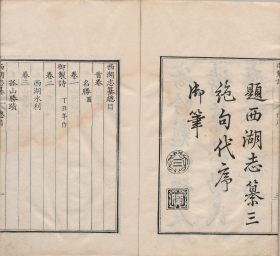 題西湖志纂三
絶句代序
御筆
西湖志纂總目
首卷
名勝圖
卷一
御製詩 丁丑年作
卷二
西湖水利
卷三
孤山勝蹟